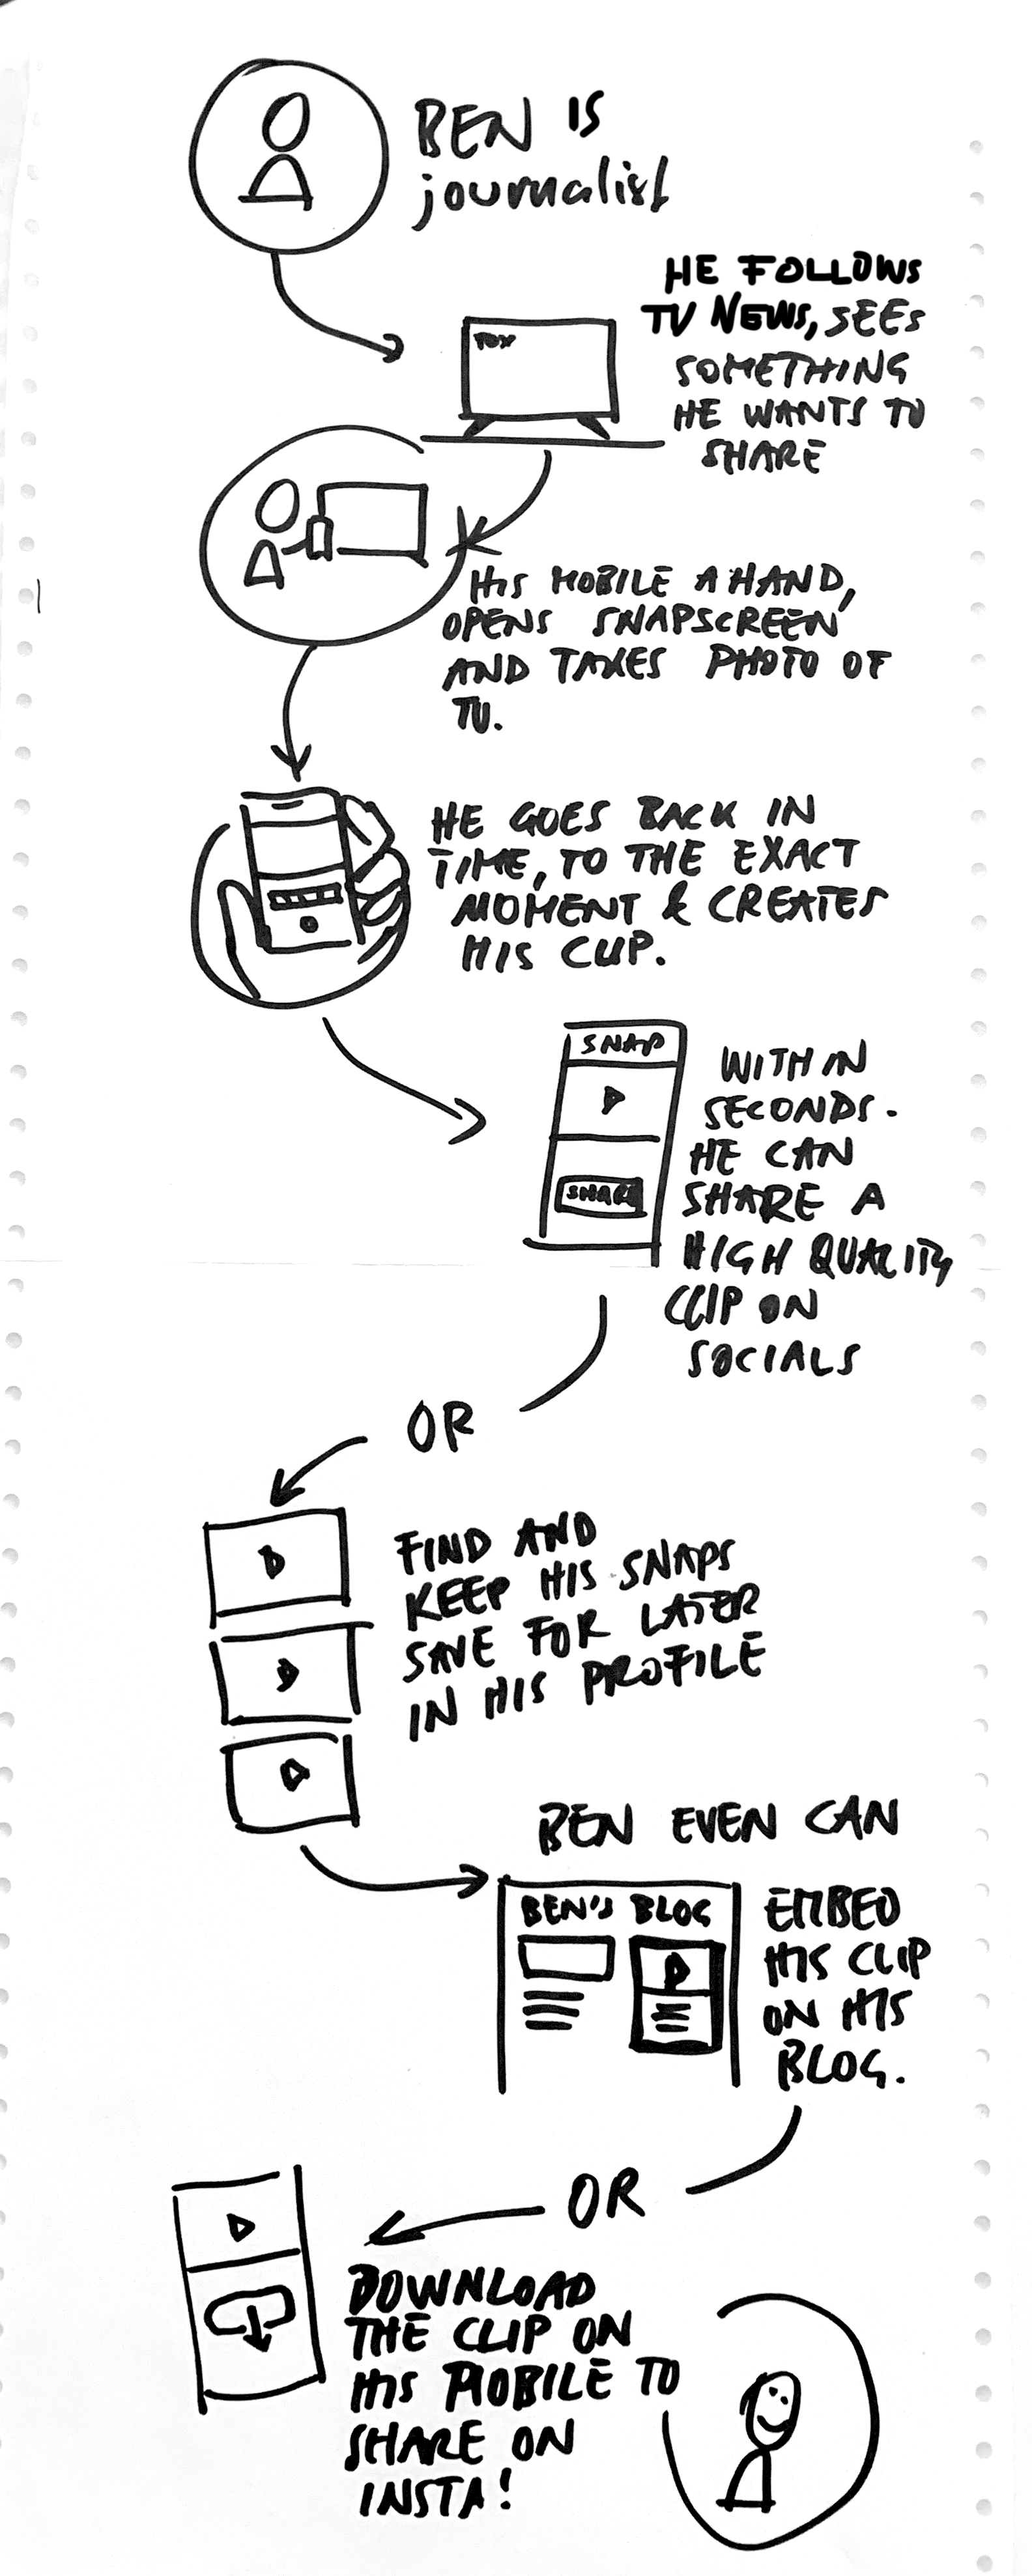 BEN IS
journalist
HE FOLLOWS
TV NEWS, SEES
SOMETHING
HE WANTS TO
SHARE
FOX
HIS MOBILE A HAND,
OPENS SNAPSCREEN
AND TAKES PHOTO OF
TV.
HE GOES BACK IN
TIME, TO THE EXACT
MOMENT & CREATES
HIS CLIP.
SNAP
SHARE
WITHIN
SECONDS.
HE CAN
SHARE A
HIGH QUALITY
CLIP ON
SOCIALS
OR
FIND AND
KEEP HIS SNAPS
SAVE FOR LATER
IN HIS PROFILE
BEN EVEN CAN
BEN'S BLOG
EMBED
HIS CLIP
ON HIS
BLOG.
OR
DOWNLOAD
THE CLIP ON
HIS MOBILE TO
SHARE ON
INSTA!